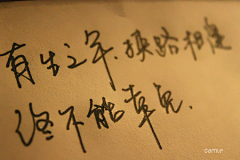 有生之年.狭路相逢
终不能幸免.